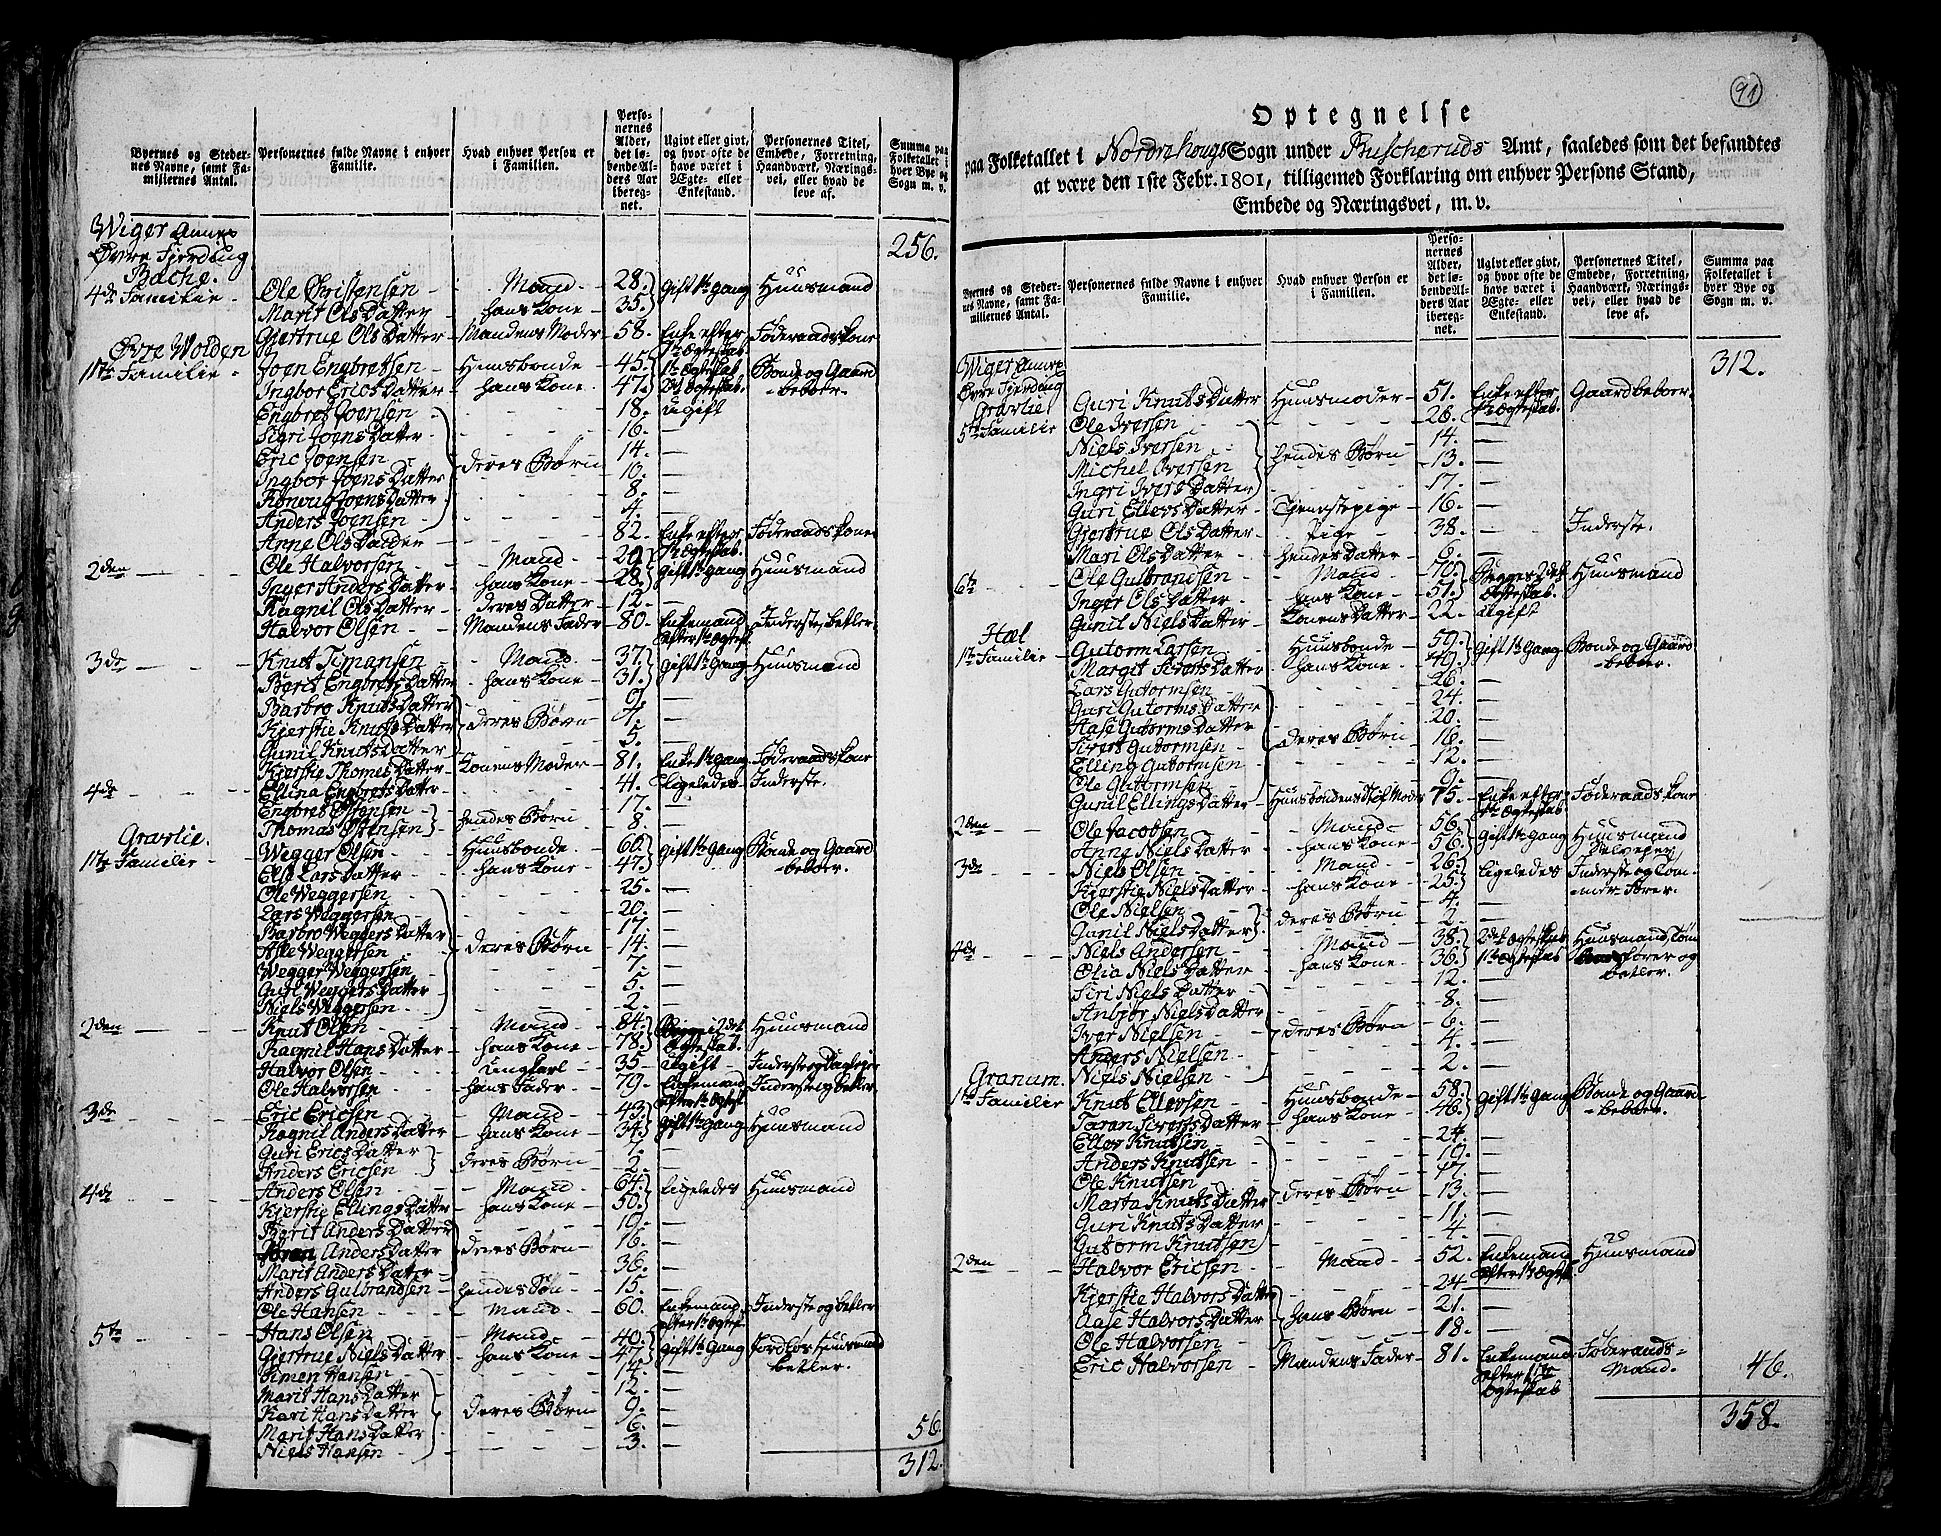 Byernes og Steder-nes Navne, samt Fa-miliernes Antal. | Personernes fulde Navne i enhver Familie. | Hvad enhver Person er i Familien. | Perso-nernes Alder, det lø-bende Al-ders Aar ibereg-net. | Ugivt eller givt, og hvor ofte de have været i Ægte- eller Enkestand. | Personernes Titel, Embede, Forretning, Haandværk, Nærings-vei, eller hvad de leve af. | Summa paa Folketallet i hver Bye og Sogn m. v.
Wiger Annex
Øvre Fjerding 256.
Bache.
4de Familie - Ole Christensen - Mand - 28. Gift 1te gang Huusmand
Marit OlsDatter - hans Kone - 35.
Gjertrue OlsDatter - Mandens Moder - 58. Enke efter 1te Ægteskab. Føderaadskone
Øvre Wolden
1te Familie - Joen Engbretsen - Huusbonde - 45. 1te Ægteskab Bonde og Gaard
Ingbor EricsDatter - hans Kone - 47. 2det Ægteskab. -beboer.
Engbret Joensen - 18. ugift
Sigri JoensDatter - 16. -
Eric Joensen - deres Børn 14. -
Ingbor JoensDatter 10. -
Rønnug JoensDatter 8. -
Anders Joensen - 4. -
Anne OlsDatter - 82. Enke efter 1te Ægteskab. Føderaadskone
2den Ole Halvorsen - Mand - 29 Gift 1te gang Huusmand
Inger AndersDatter - hans Kone - 28.
Ragnil OlsDatter - deres Datter - 12. -
Halvor Olsen - Mandens Fader - 80. Enkemand efter 1te Ægtes. Inderste, betler.
3de Knut Simansen - Mand - 37. Gift 1te gang Huusmand
Berit EngbretsDatter - hans Kone - 31.
Barbro KnutsDatter 9. -
Kjerstie KnutsDatter deres Børn - 7. -
Gunil KnutsDatter 5. -
Kjerstie ThomesDatter - Konens Moder - 81. Enke 1te gang Føderaadskone
4de Ellina EngbretsDatter - 41. Ligeledes Inderste.
Engbret Østensen - hendes Børn - 17. -
Thomas Østensen 8. -
Gravlie.
1te Familie - Wegger Olsen - Huusbonde - 60. Gift 1te gang Bonde og Gaard
Else LarsDatter - hans Kone - 47. -beboer.
Ole Weggersen - 25. -
Lars Weggersen - 20. -
Barbro WeggersDatter 17. -
Asle Weggersen - deres Børn - 14. -
Wegger Weggersen 7. -
Guri WeggersDatter 5. -
Niels Weggersen - 2. -
2den Knut Olsen - Mand - 84. Begge i 2det Ægteskab. Huusmand
Ragnil HansDatter - hans Kone - 78.
Halvor Olsen - Ungkarl - 35 - Ugift Inderste og Dagleje
Ole Halvorsen - hans Fader - 79. Enkemand efter 1te Ægtesk. Inderste og betler
3de Eric Ericsen - Mand - 43. Gift 1te gang Huusmand
Ragnil AndersDatter - hans Kone - 34.
Guri EricsDatter - deres Børn - 7. -
Anders Ericsen - 2. -
4de Anders Olsen - Mand - 64. Ligeledes Huusmand
Kjerstie EllingsDatter - hans Kone - 50.
Berit AndersDatter 19. -
AndersDatter deres Børn - 16. -
Marit AndersDatter - 36. -
Anders Gulbrandsen - hendes Søn - 15. -
Ole Hansen - Mand - 60. Enkemand efter 1te Ægtes. Inderste og betler
5te Hans Olsen - Mand - 40. Gift 1te Gang Jordløs Huusmand
Gjertrue NielsDatter - hans Kone - 47 betler.
Simen Hansen - 14. -
Marit HansDatter 12. -
Kari HansDatter deres Børn 9. -
Marit HansDatter 6. -
Niels Hansen - 3. - 56.
312.
91
Optegnelse
paa Folketallet i Nordrehougs Sogn under Buscheruds Amt, saaledes som det befandtes
at være den 1ste Febr. 1801, tilligemed Forklaring om enhver Persons Stand,
Embede og Næringsvei, m. v.
Byernes og Steder-nes Navne, samt Fa-miliernes Antal. | Personernes fulde Navne i enhver Familie. | Hvad enhver Person er i Familien. | Perso-nernes Alder, det lø-bende Al-ders Aar ibereg-net. | Ugivt eller givt, og hvor ofte de have været i Ægte- eller Enkestand. | Personernes Titel, Embede, Forretning, Haandværk, Nærings-vei, eller hvad de leve af. | Summa paa Folketallet i hver Bye og Sogn m. v.
Wiger Annex 312.
Øvre Fjerding
Gravlie
5te Familie Guri KnutsDatter Huusmoder - 51. Enke efter 1te Ægteskab. Gaardbeboer.
Ole Iversen 28. -
Niels Iversen - hendes Børn 14. -
Michel Iversen 13. -
Ingri IversDatter 17. -
Guri EllevsDatter - Tjenestepige - 16. -
Gjertrue OlsDatter - Pige - 38. - Inderste.
Mari OlsDatter - hendes Datter - 6. -
6te Ole Gulbrandsen - Mand - 70. Begge 2det Ægteskab. Huusmand
Inger OlsDatter - hans Kone - 51.
Gunil NielsDatter - Konens Datter - 22. Ugift
Hæl
1te Familie - Gutorm Larsen - Huusbonde - 50. Gift 1te Gang Bonde og Gaard
Margit SivertsDatter - hans Kone - 49. -beboer.
Lars Gutormsen - 26. -
Guri GutormsDatter 24. -
Aase GutormsDatter 20. -
Sivert Gutormsen - deres Børn - 16. -
Elling Gutormsen 12. -
Ole Gutormsen - 9. -
Gunil EllingsDatter - Huusbondens Stif Moder 75. Enke efter 1te Ægteskab Føderaadskone
2den Ole Jacobsen - Mand - 56. Gift 1te gang Huusmand
Anne NielsDatter - hans Kone - 56.
3de Niels Olsen - Mand - 26. Ligeledes Inderste og Tøm-
Kjerstie NielsDatter - hans Kone - 25. -mer-kører.
Ole Nielsen - deres Børn - 4. -
Gunil NielsDatter 2. -
4de Niels Andersen - Mand - 38. 2det Ægteskab Huusmand, Tøm
Olia NielsDatter - hans Kone - 36. 1te Ægteskab kører og betler.
Siri NielsDatter - 12. -
Anbjør NielsDatter 8. -
Iver Nielsen - deres Børn - 6. -
Anders Nielsen - 4. -
Niels Nielsen - 2. -
Granum.
1te Familie Knut Ellevsen - Huusbonde - 58. Gift 1te Gang Bonde og Gaard
Taran SivertsDatter - hans Kone - 46. -beboer.
Ellev Knutsen 24. -
Anders Knutsen - 19. -
Ole Knutsen - 17. -
Marta KnutsDatter deres Børn - 13. -
Guri KnutsDatter 11. -
Gutorm Knutsen 4. -
2den Halvor Ericsen - Mand - 52. Enkemand efter 1te Ægtesk. Huusmand
Kjerstie HalvorsDatter 24 -
Aase HalvorsDatter hans Børn - 21. -
Ole Halvorsen 18. -
Eric Halvorsen - Mandens Fader - 81. Enkemand efter 1te Ægteskab Føderaads-Mand. 46.
358.